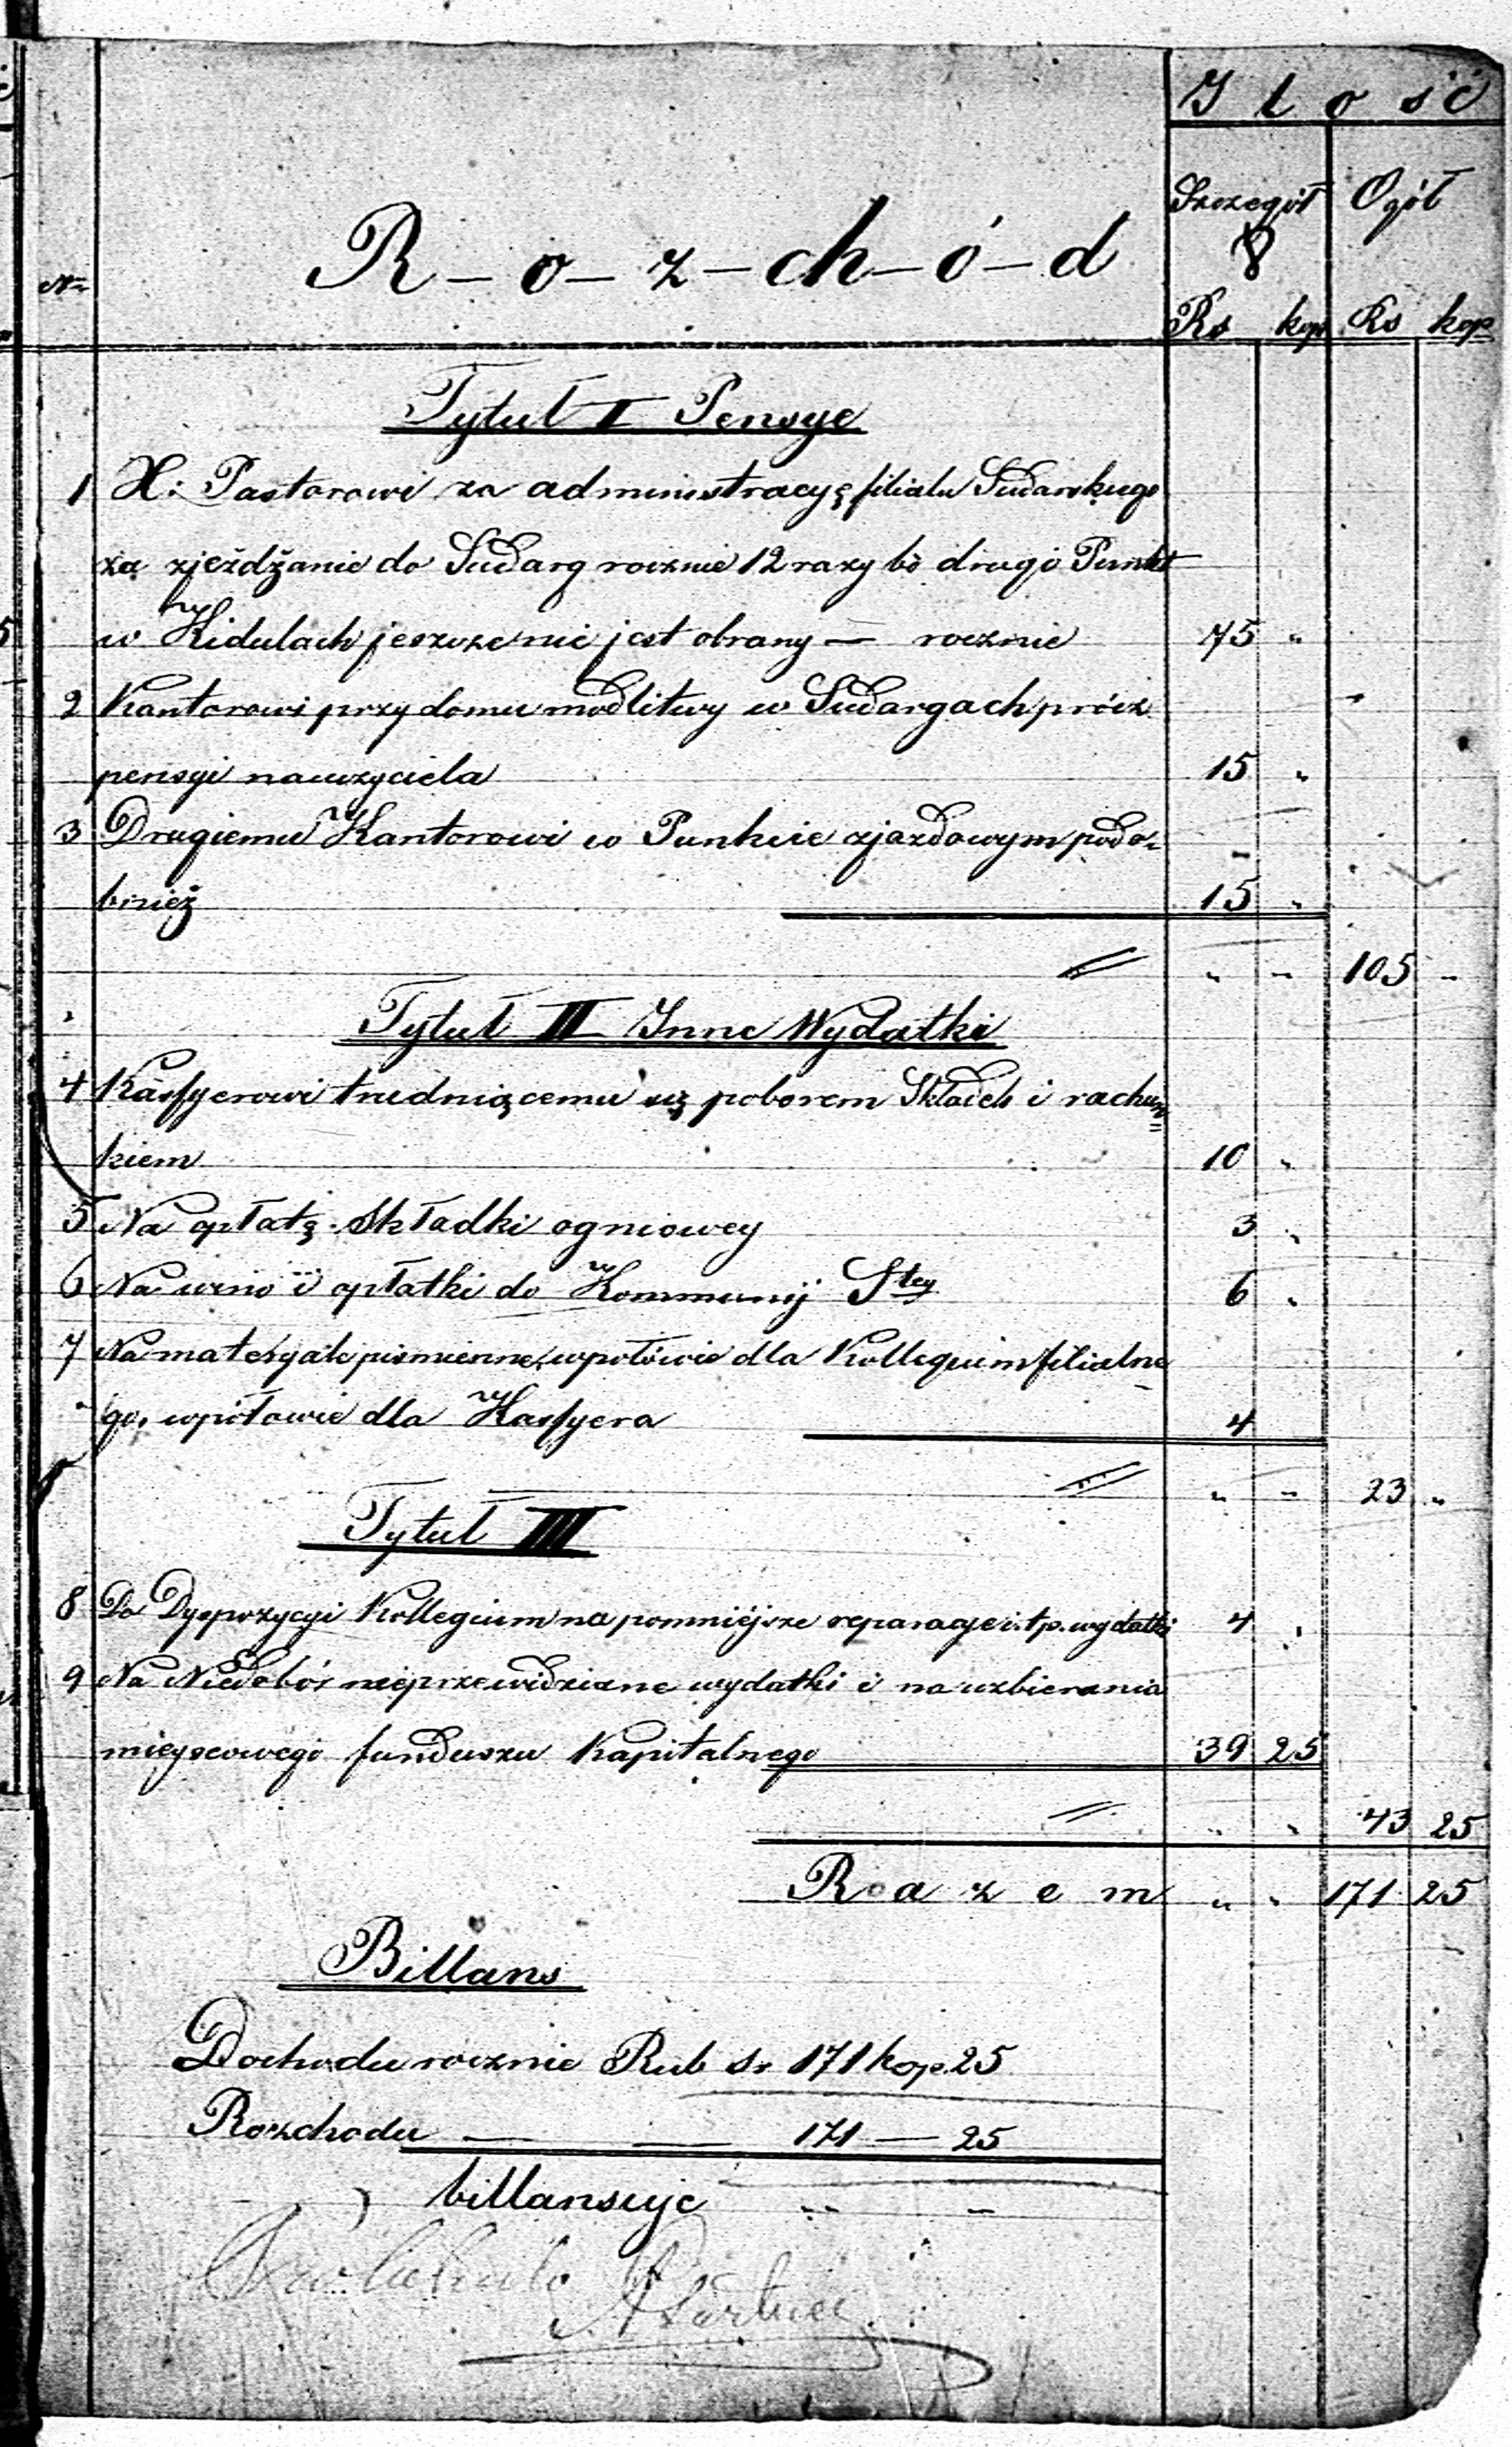 Ilość
Szczegół Ogół
№ R-o-z-ch-ó-d
Rs kop Rs kop
Tytuł I Pensye
1 X: Pastorowi za administracyę filiału Sudarskiego
za zjeżdżanie do Sudarg rocznie 12 razy bo drugi Punkt
w Kidulach jeszcze nie jest obrany — rocznie 75 "
2 Kantorowi przy domu modlitwy w Sudargach prócz
pensyi nauczyciela 15 "
3 Drugiemu Kantorowi w Punkcie zjazdowym podo-
bnież 15 "
" " 105 "
Tytuł II Inne Wydatki
4 Kassyerowi trudniącemu się poborem Składek i rachun=
kiem 10 "
5 Na opłatę Składki ogniowey 3 "
6 Na wino i opłatki do Kommunij Stey 6 "
7 Na materyały piśmienne, wpołowie dla Kollegium filialne
go, wpołowie dla Kassyera 4
" " 23 "
Tytuł III
8 Do Dyspozycyi Kollegium na pomniejsze reparacye i t.p. wydatki 4 "
9 Na Niedobór nieprzewidziane wydatki i na uzbierania
miejscowego funduszu Kapitalnego 39 25
" " 43 25
Razem " " 171 25
Billans
Dochodu rocznie Rub sr 171 kop. 25
Rozchodu — — 171 — 25
billansuje " —